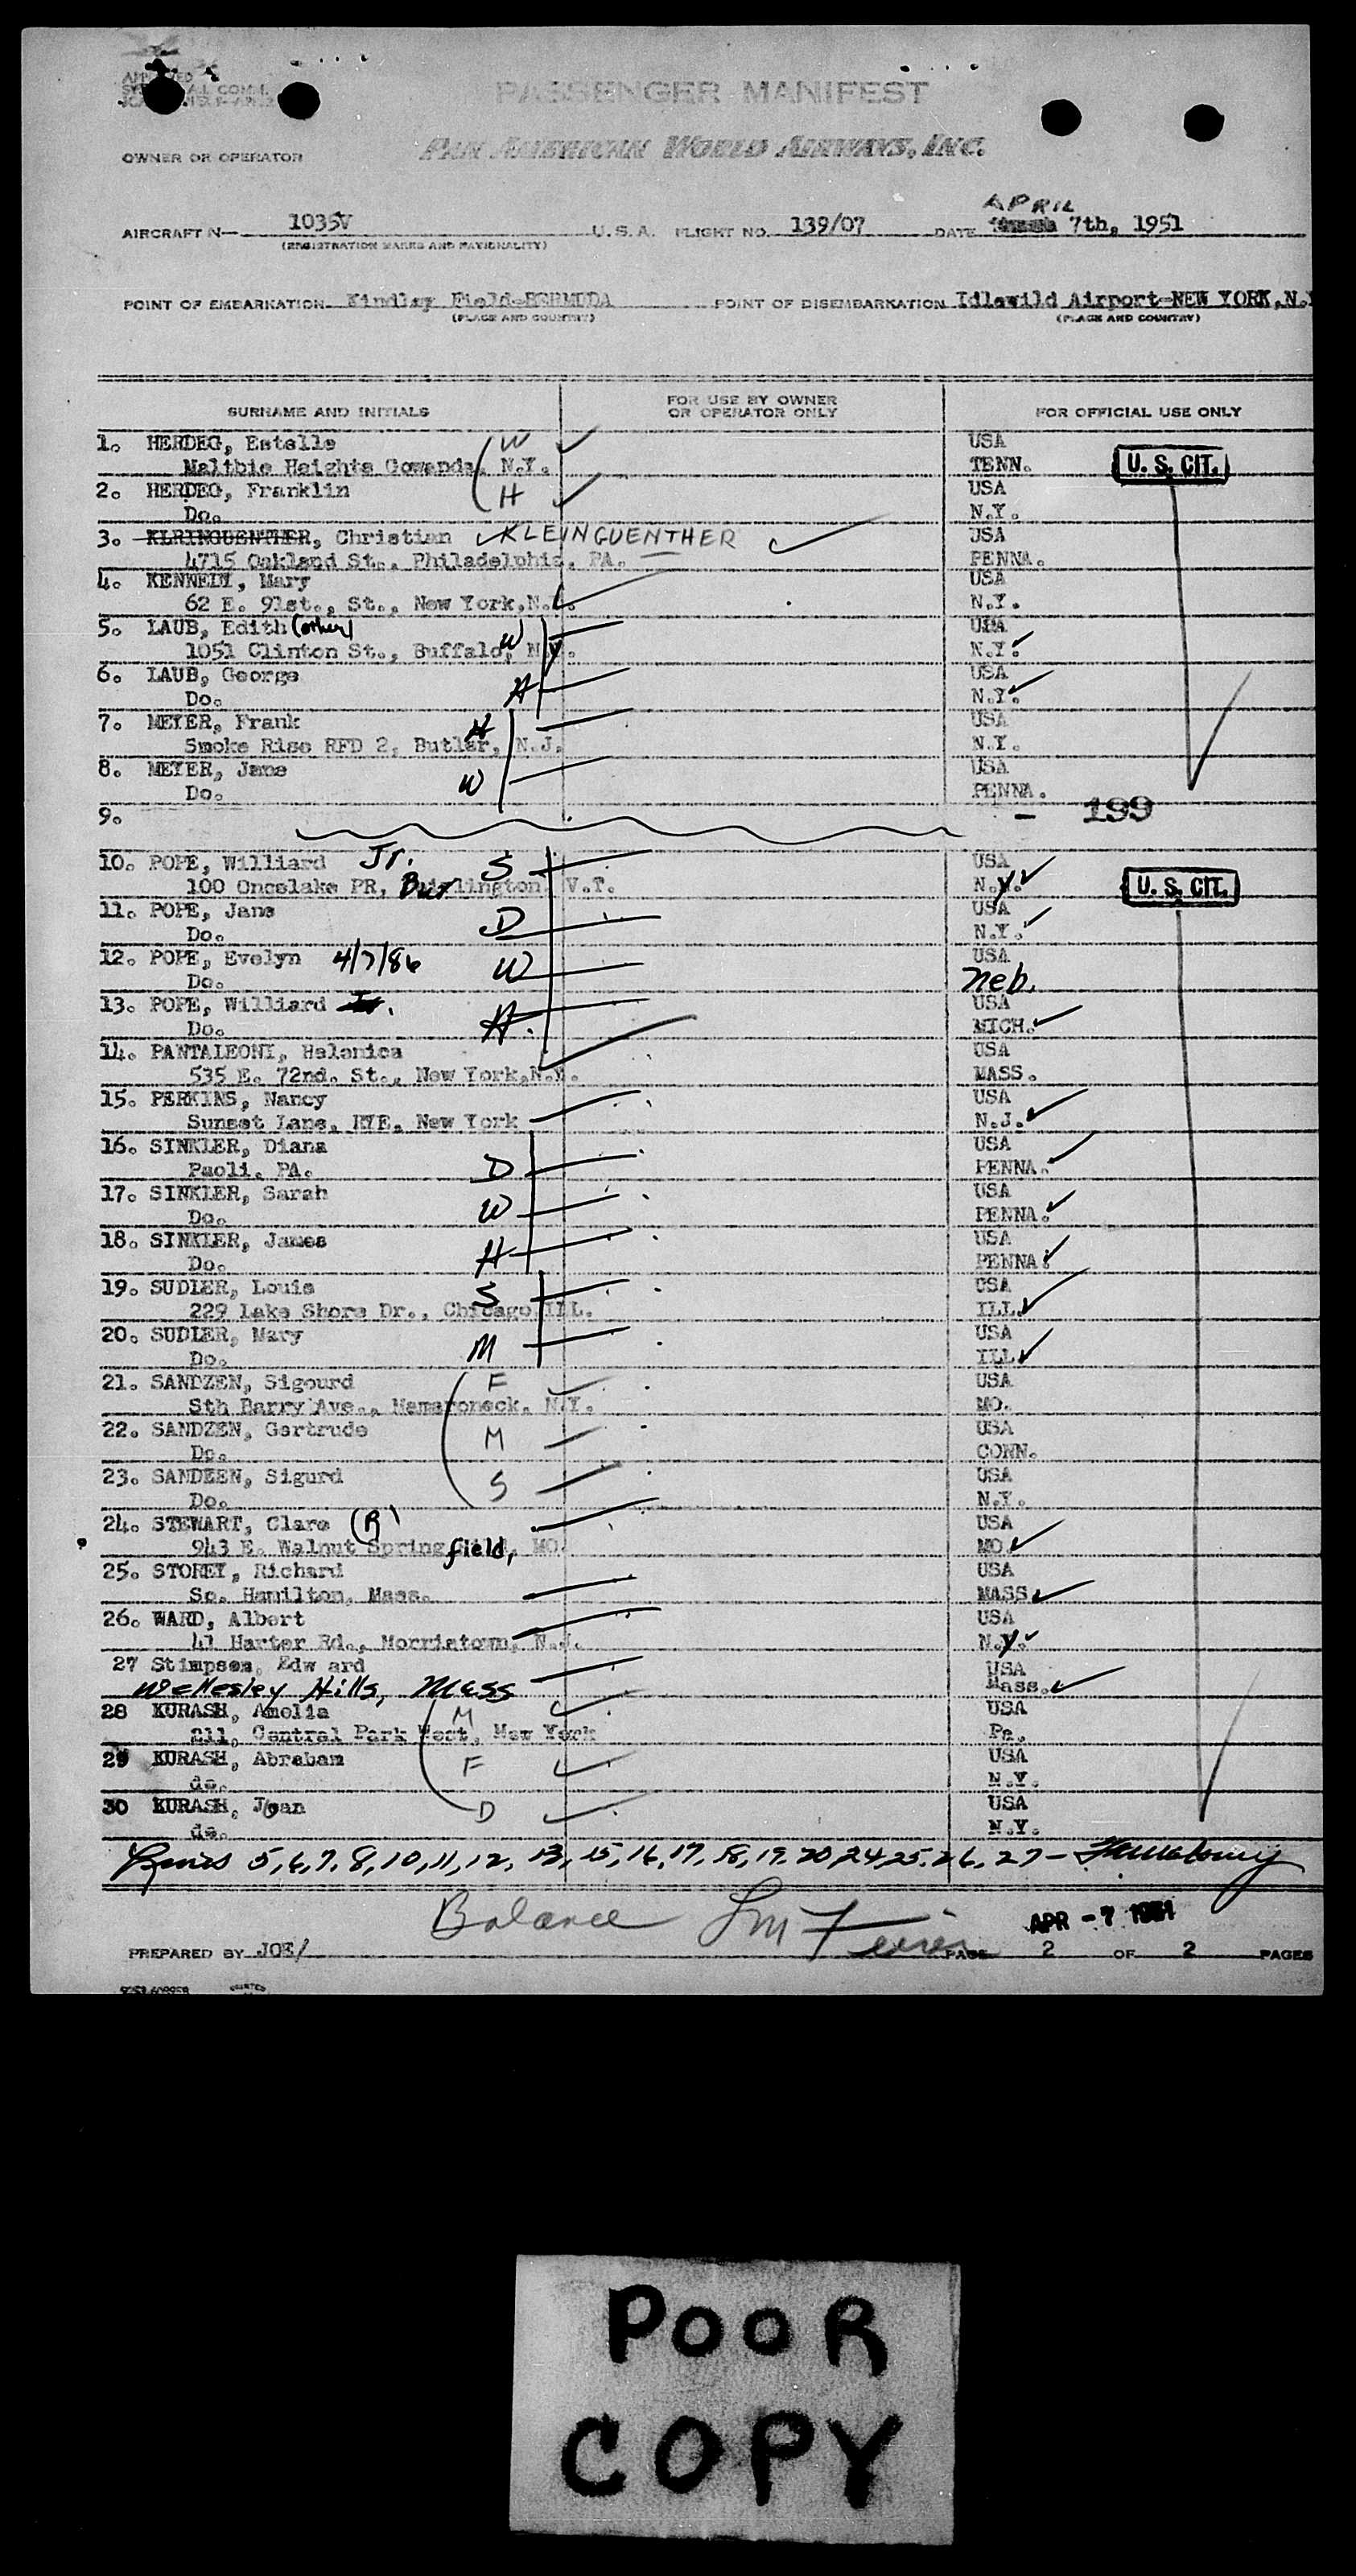 PASSENGER MANIFEST
OWNER OR OPERATOR PAN AMERICAN WORLD AIRWAYS, INC.
APRIL
AIRCRAFT N— 1035V U.S.A. FLIGHT NO. 139/07 DATE 7th, 1951
(REGISTRATION MARKS AND NATIONALITY)
POINT OF EMBARKATION Kindley Field-BERMUDA POINT OF DISEMBARKATION Idlewild Airport-NEW YORK,N.Y
(PLACE AND COUNTRY) (PLACE AND COUNTRY)
SURNAME AND INITIALS FOR USE BY OWNER OR OPERATOR ONLY FOR OFFICIAL USE ONLY
1. HERDEG, Estelle W USA
Maltbie Heights Gowanda, N.Y. TENN. U. S. CIT.
2. HERDEG, Franklin H USA
Do. N.Y.
3. KLRINGUENTHER, Christian KLEINGUENTHER USA
4715 Oakland St., Philadelphia, PA. PENNA.
4. KENNEDY, Mary USA
62 E. 91st., St., New York,N.Y. N.Y.
5. LAUB, Edith W USA
1051 Clinton St., Buffalo, N.Y. N.Y.
6. LAUB, George H USA
Do. N.Y.
7. MEYER, Frank H USA
Smoke Rise RFD 2, Butler, N.J. N.Y.
8. MEYER, Jane W USA
Do. PENNA.
9. - 199
10. POPE, Williard Jr. S USA
100 Oneslake PR, Burlington V.T. N.Y. U. S. CIT.
11. POPE, Jane D USA
Do. N.Y.
12. POPE, Evelyn 4/7/86 W USA
Do. Neb.
13. POPE, Williard Jr. H. USA
Do. MICH.
14. PANTALEONI, Helenica USA
535 E. 72nd. St., New York,N.Y. MASS.
15. PERKINS, Nancy USA
Sunset Lane, RYE, New York N.J.
16. SINKLER, Diana D USA
Paoli, PA. PENNA.
17. SINKLER, Sarah W USA
Do. PENNA.
18. SINKLER, James H USA
Do. PENNA.
19. SUDLER, Louis S USA
229 Lake Shore Dr., Chicago,ILL. ILL
20. SUDLER, Mary M USA
Do. ILL
21. SANDZEN, Sigourd F USA
Sth Barry Ave., Mamaroneck, N.Y. MO.
22. SANDZEN, Gertrude M USA
Do. CONN.
23. SANDZEN, Sigurd S USA
Do. N.Y.
24. STEWART, Clare (R) USA
943 E. Walnut Springfield, MO. MO.
25. STOREY, Richard USA
So. Hamilton, Mass. MASS
26. WARD, Albert USA
41 Harter Rd., Morristown, N.J. N.Y.
27 Stimpson, Edw ard USA
Wellesley Hills, Mass Mass.
28 KURASH, Amelia M USA
211, Central Park West, New York Pa.
29 KURASH, Abraham F USA
do. N.Y.
30 KURASH, Joan D USA
do. N.Y.
5,6,7,8,10,11,12, 13, 15, 16,17, 18, 19, 20,24,25,26, 27 -
Balance
APR - 7 1951
PREPARED BY JOE/ PAGE 2 OF 2 PAGES
POOR
COPY